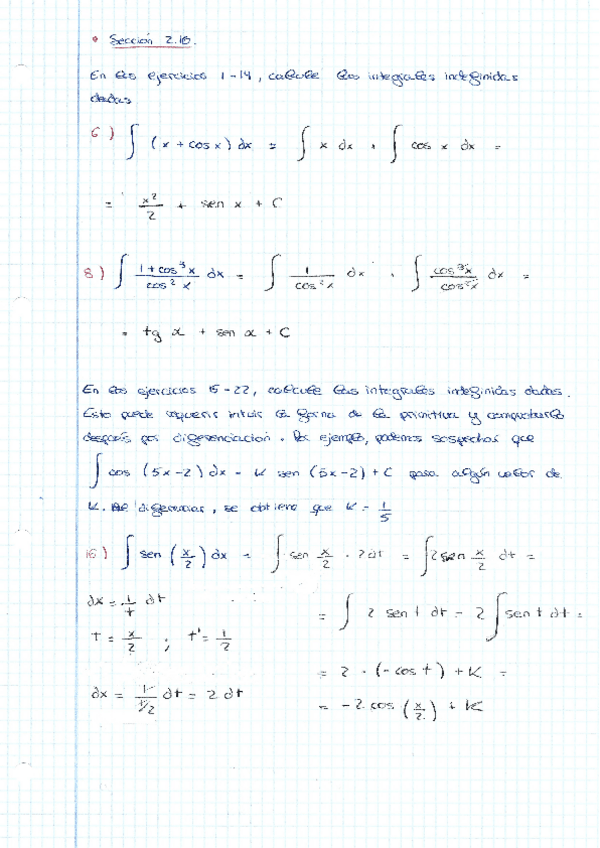 • Sección 2.10.
En los ejercicios 1-14, calcule las integrales indefinidas
dadas
6) ∫ (x + cos x) dx = ∫ x dx + ∫ cos x dx =
= x²/2 + sen x + C
8) ∫ (1 + cos³x)/(cos²x) dx = ∫ 1/(cos²x) dx + ∫ (cos³x)/(cos²x) dx =
= tg x + sen x + C
En los ejercicios 15-22, calcule las integrales indefinidas dadas.
Esto puede requerir intuir la forma de la primitiva y comprobarlo
después por diferenciación. Por ejemplo, podemos sospechar que
∫ cos (5x-2) dx = K sen (5x-2) + C para algún valor de
K. Al diferenciar, se obtiene que K = 1/5
16) ∫ sen (x/2) dx = ∫ sen x/2 · 2dt = ∫ 2 sen x/2 dt =
dx = 1/t' dt
= ∫ 2 sen t dt = 2 ∫ sen t dt =
t = x/2 ; t' = 1/2
= 2 · (-cos t) + K =
dx = 1/(1/2) dt = 2 dt
= -2 cos (x/2) + K